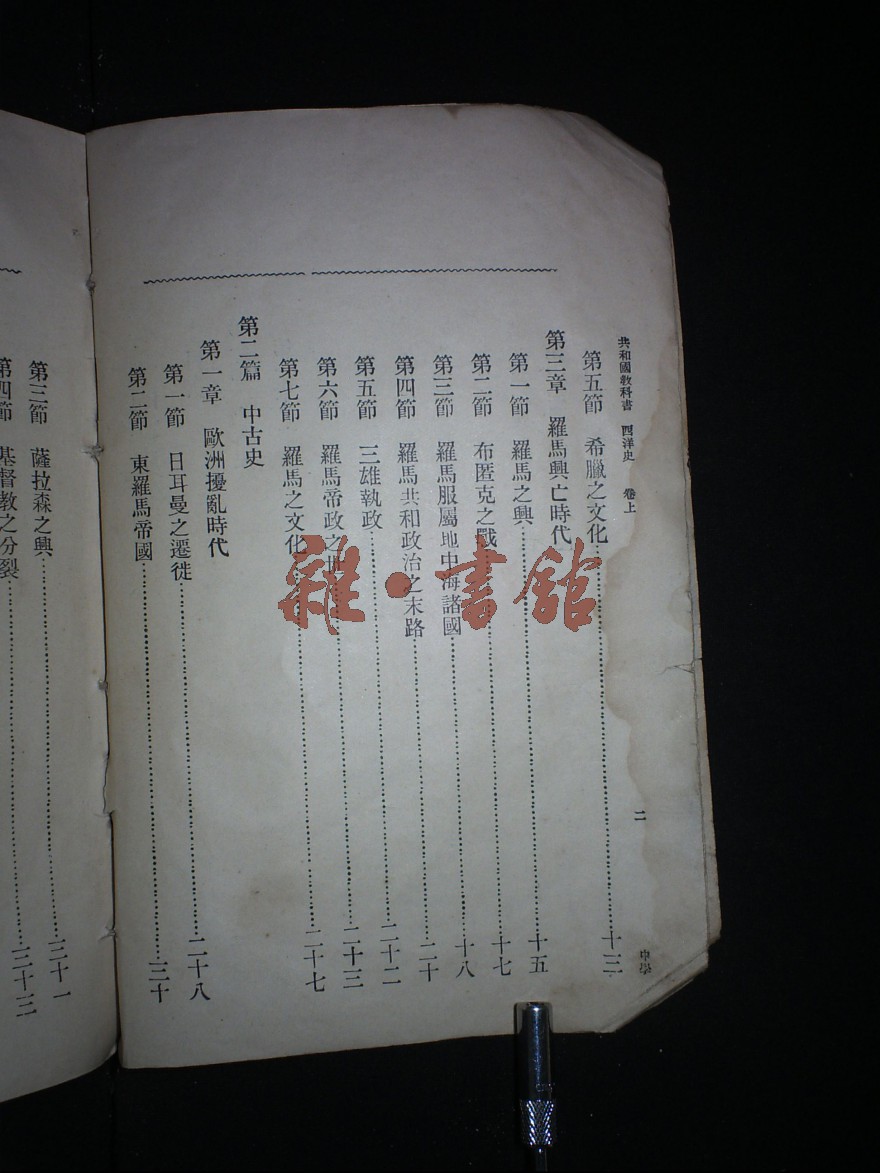 共和國敎科書 西洋史 卷上
二
中學
第五節 希臘之文化 十三
第三章 羅馬興亡時代
第一節 羅馬之興 十五
第二節 布匿克之戰 十七
第三節 羅馬服屬地中海諸國 十八
第四節 羅馬共和政治之末路 二十
第五節 三雄執政 二十二
第六節 羅馬帝政之世 二十三
第七節 羅馬之文化 二十七
第二篇 中古史
第一章 歐洲擾亂時代
第一節 日耳曼之遷徙 二十八
第二節 東羅馬帝國 三十
第三節 薩拉森之興 三十一
第四節 基督敎之分裂 三十三
雜·書館